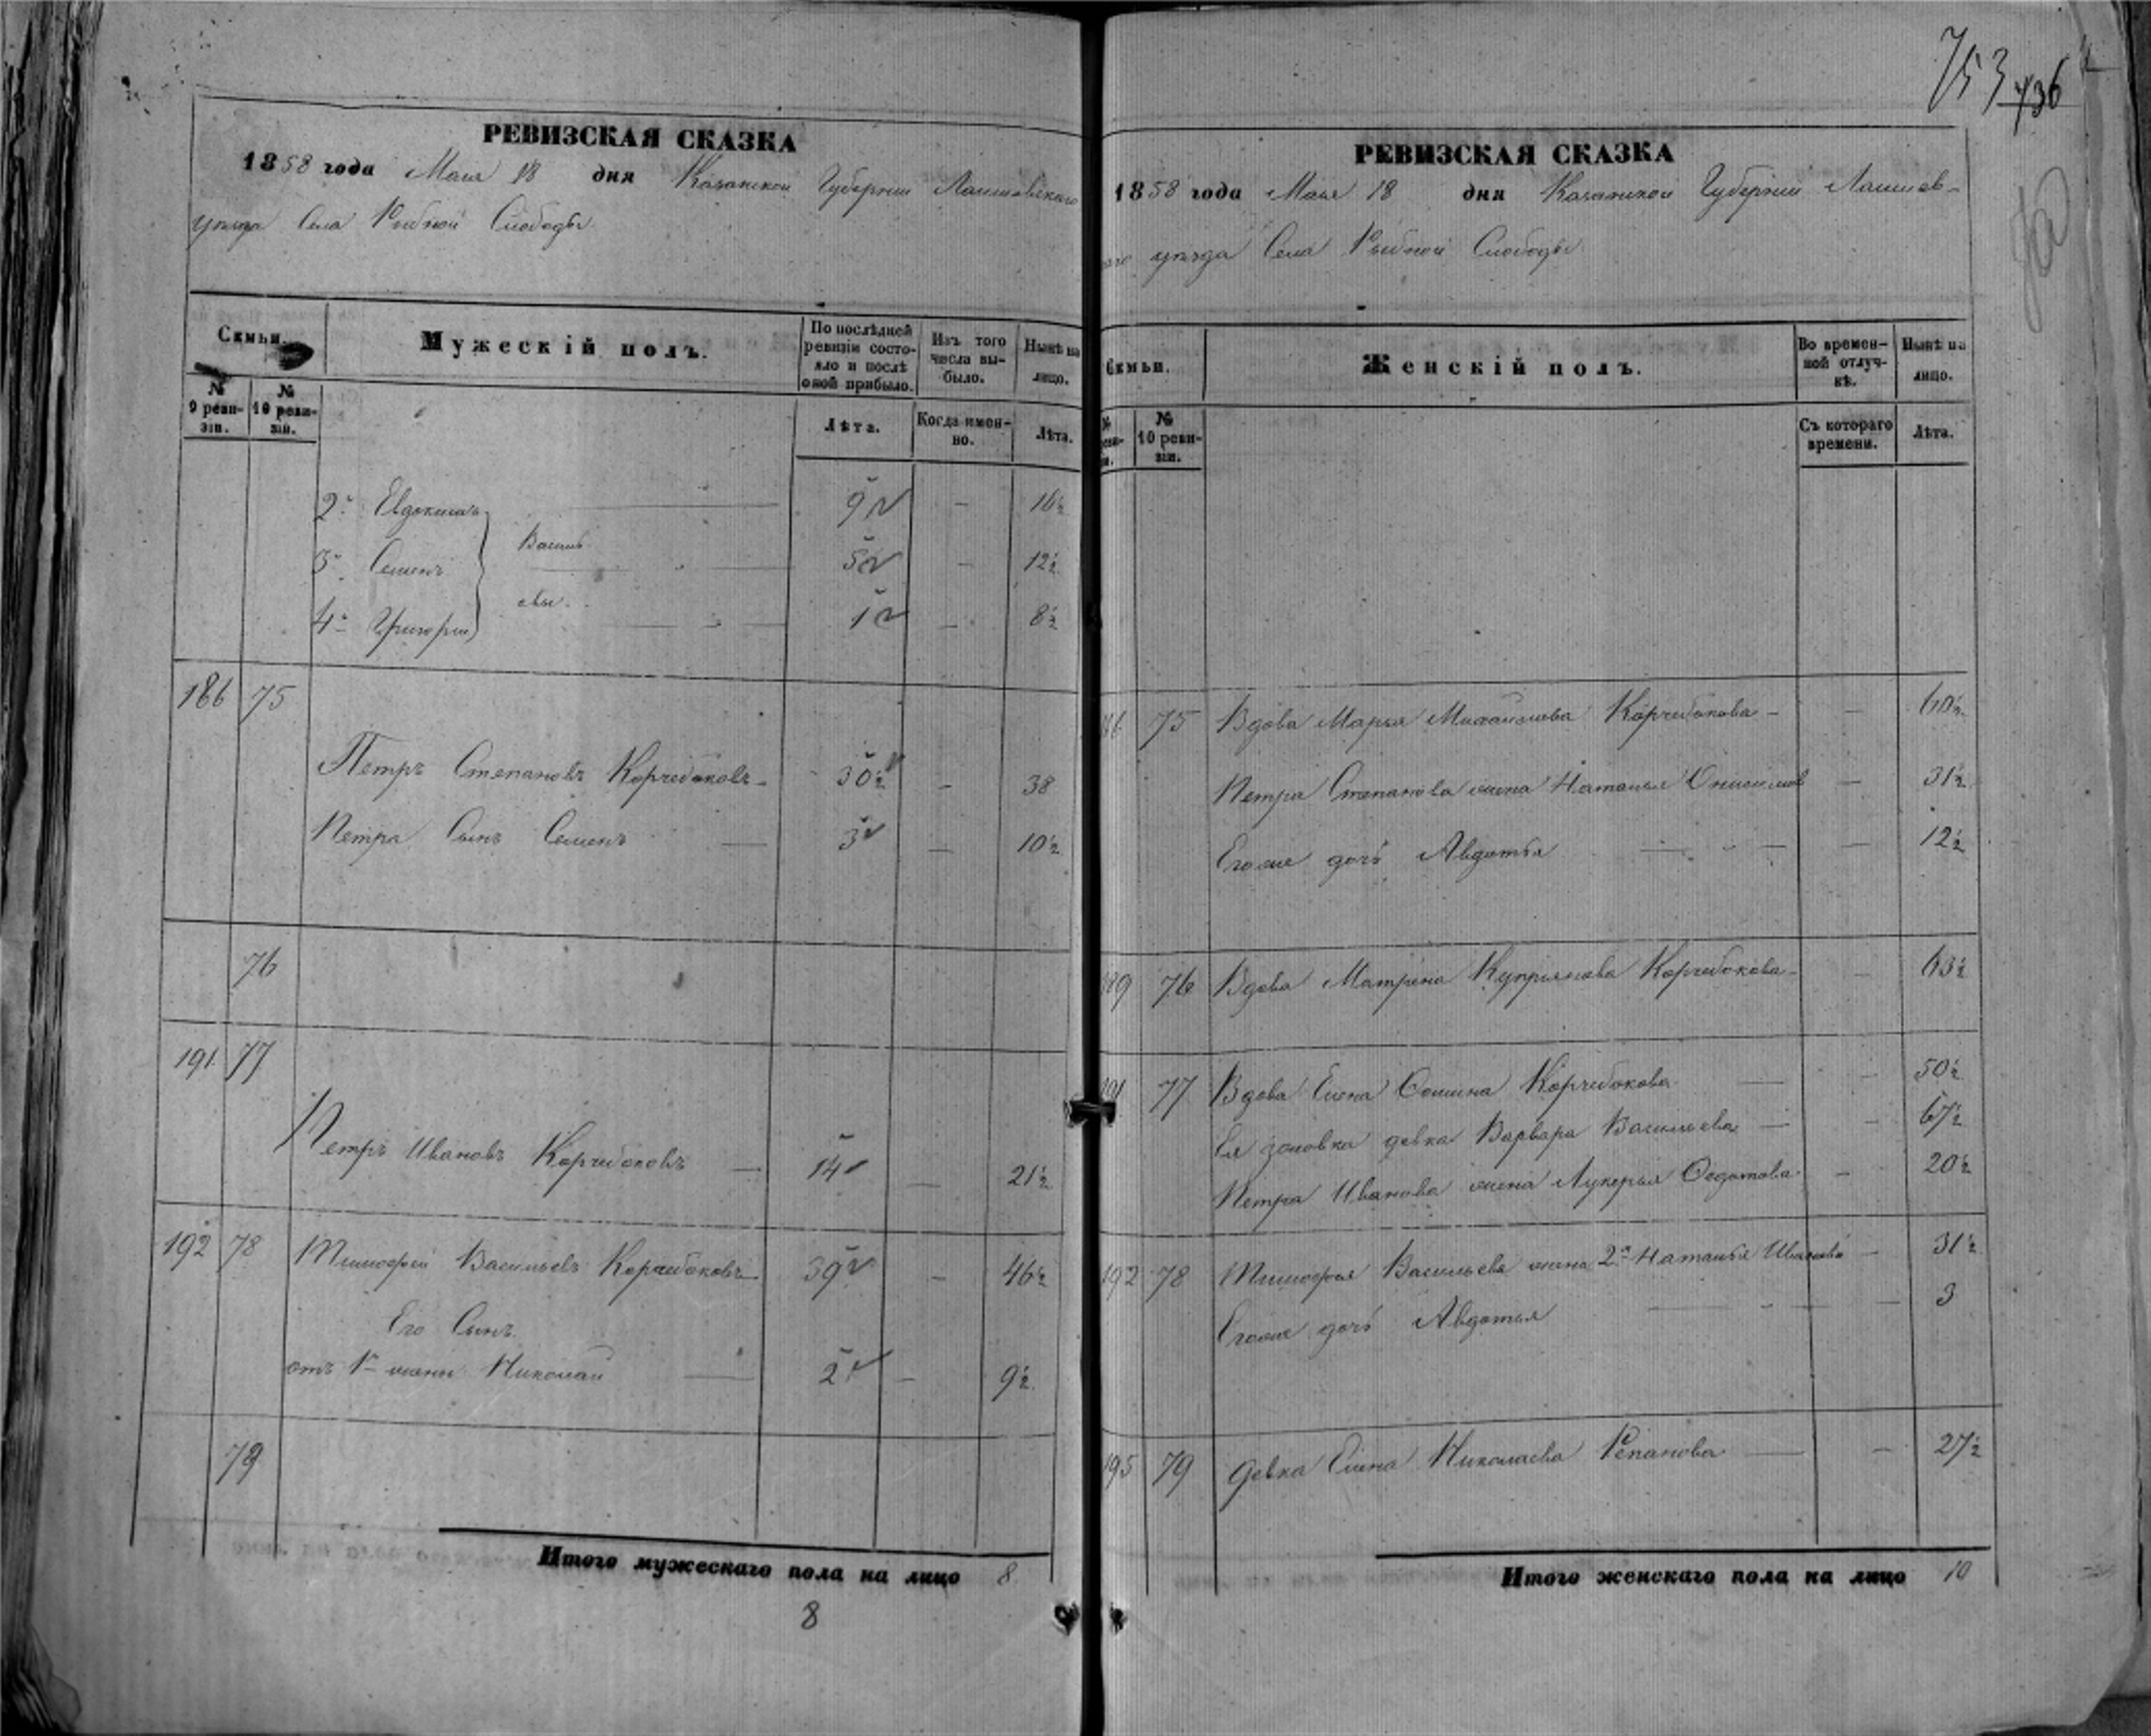 753 436
РЕВИЗСКАЯ СКАЗКА
1858 года Мая 18 дня Казанской Губернии Лаишевскаго
уезда Села Рыбной Слободы
Семьи.
Мужескій полъ.
По послѣдней ревизіи состояло и послѣ оной прибыло.
Изъ того числа выбыло.
Нынѣ на лицо.
№ 9 ревизіи.
№ 10 ревизіи.
Лѣта.
Когда именно.
Лѣта.
2й Евдокимъ 9 — 16½
3й Семенъ Василь 5 — 12½
4й Григорій евы. 1 — 8½
186 75
Петръ Степановъ Корчебоковъ 30½ — 38
Петра Сынъ Семенъ 3 — 10½
76
191 77
Петръ Ивановъ Корчебоковъ — 14 — 21½
192 78 Тимофей Васильевъ Корчебоковъ 39 — 46½
Его Сынъ
отъ 1й жены Николай — 2 — 9½
79
Итого мужескаго пола на лицо 8
8
РЕВИЗСКАЯ СКАЗКА
1858 года Мая 18 дня Казанской Губерніи Лаишев-
уезда Села Рыбной Слободы
Семьи.
Женскій полъ.
Во временной отлучкѣ.
Нынѣ на лицо.
№ 10 ревизіи.
Съ котораго времени.
Лѣта.
75 Вдова Марья Михайлова Корчебокова — — 60½
Петра Степанова жена Наталья Онисимов — 31½
Его же дочь Авдотья — — 12½
76 Вдова Матрена Куприянова Корчебокова — — 63½
77 Вдова Елена Фомина Корчебокова — — 50½
Ея золовка девка Варвара Васильева — — 67½
Петра Иванова жена Лукерья Федотова — 20½
192 78 Тимофея Васильева жена 2я Наталья Иванова — 31½
Его же дочь Авдотья — — 3
195 79 Девка Елена Николаева Репанова — — 27½
Итого женскаго пола на лицо 10